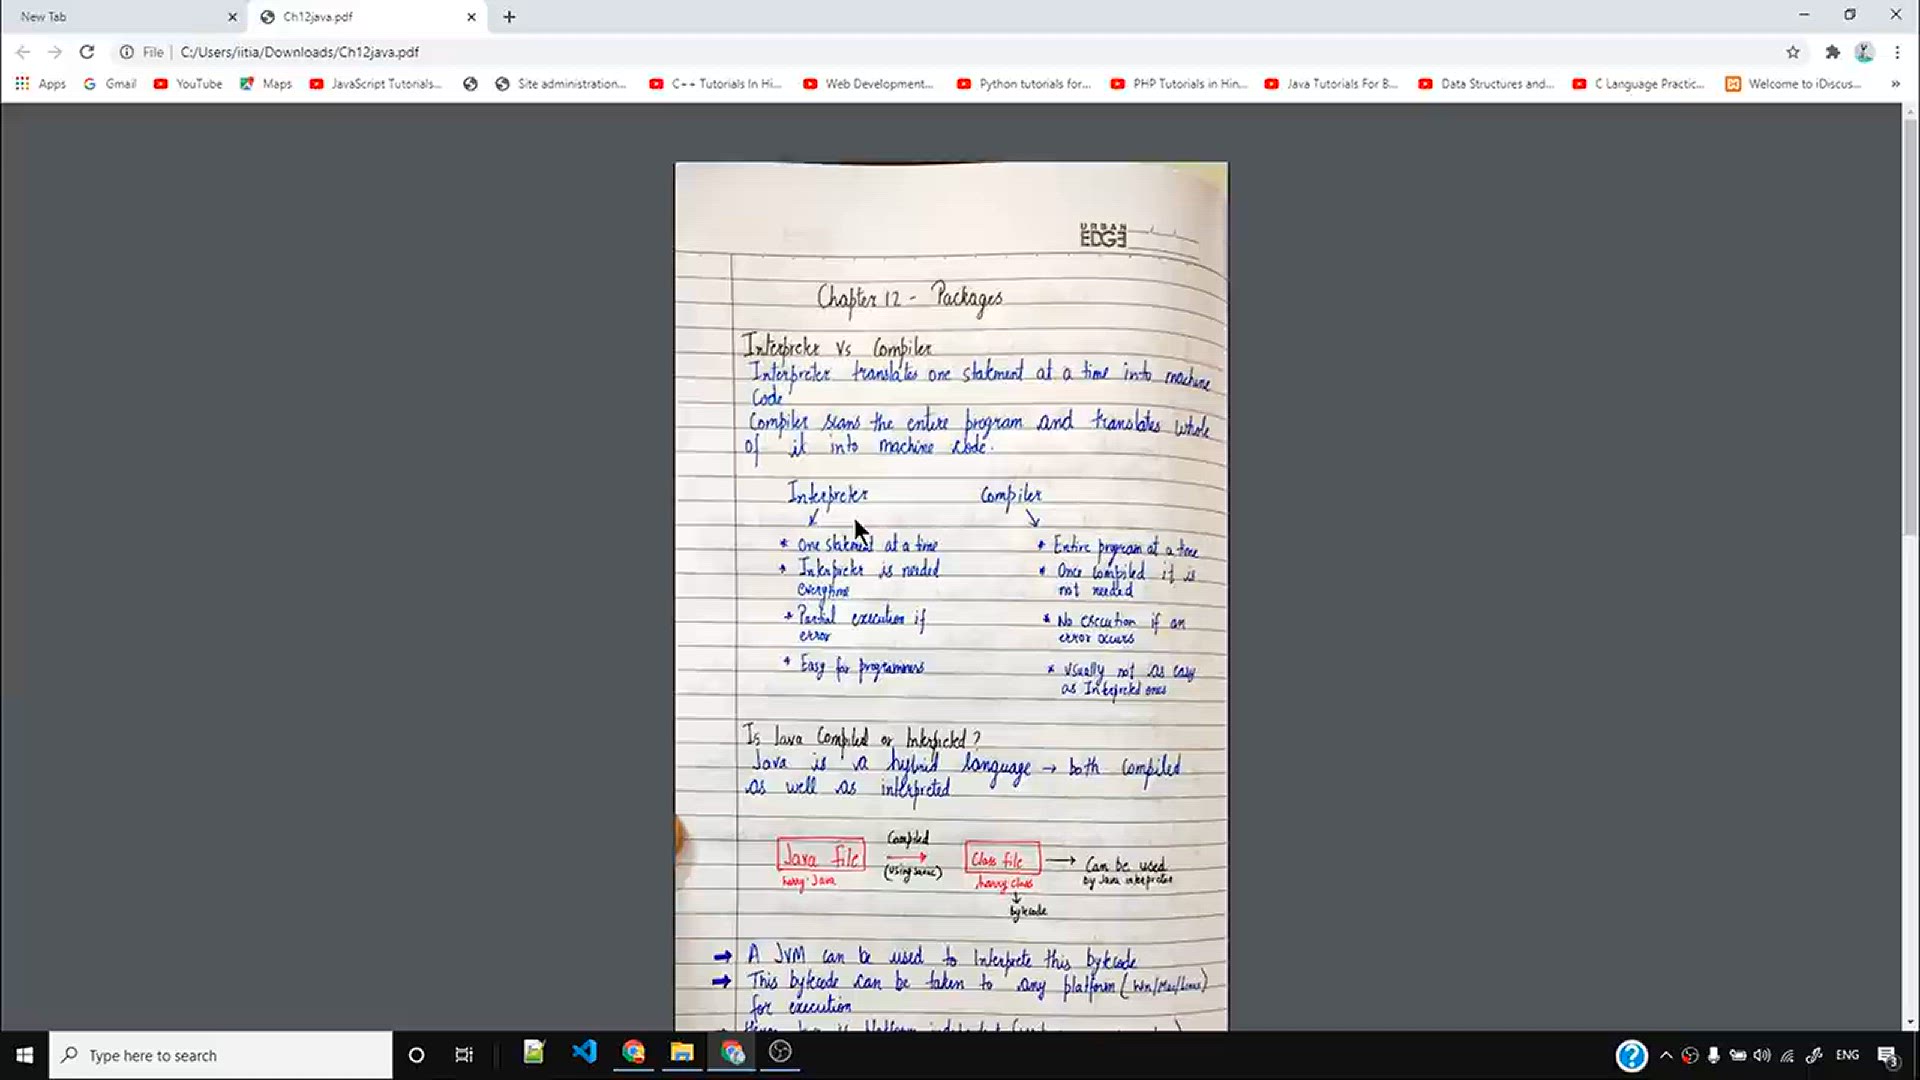 New Tab
Ch12java.pdf
File
C:/Users/iitia/Downloads/Ch12java.pdf
Apps
Gmail
YouTube
Maps
JavaScript Tutorials...
Site administration...
C++ Tutorials In Hi...
Web Development...
Python tutorials for...
PHP Tutorials in Hin...
Java Tutorials For B...
Data Structures and...
C Language Practic...
Welcome to iDiscus...
URBAN
EDGE
Chapter 12 - Packages
Interpreter Vs Compiler
Interpreter translates one statement at a time into machine
Code
Compiler scans the entire program and translates whole
of it into machine code.
Interpreter
Compiler
* One statement at a time
* Interpreter is needed
everytime
* Partial execution if
error
* Easy for programmers
* Entire program at a time
* Once compiled it is
not needed
* No execution if an
error occurs
* Usually not as easy
as Interpreted ones
Is Java Compiled or Interpreted?
Java is a hybrid language → both Compiled
as well as interpreted
Java file
harry.Java
Compiled
(Using Javac)
Class file
harry.class
bytecode
Can be used
by Java interpreter
→ A JVM can be used to Interprete this bytecode
→ This bytecode can be taken to any platform (Win/Mac/Linux)
for execution
Type here to search
ENG
3